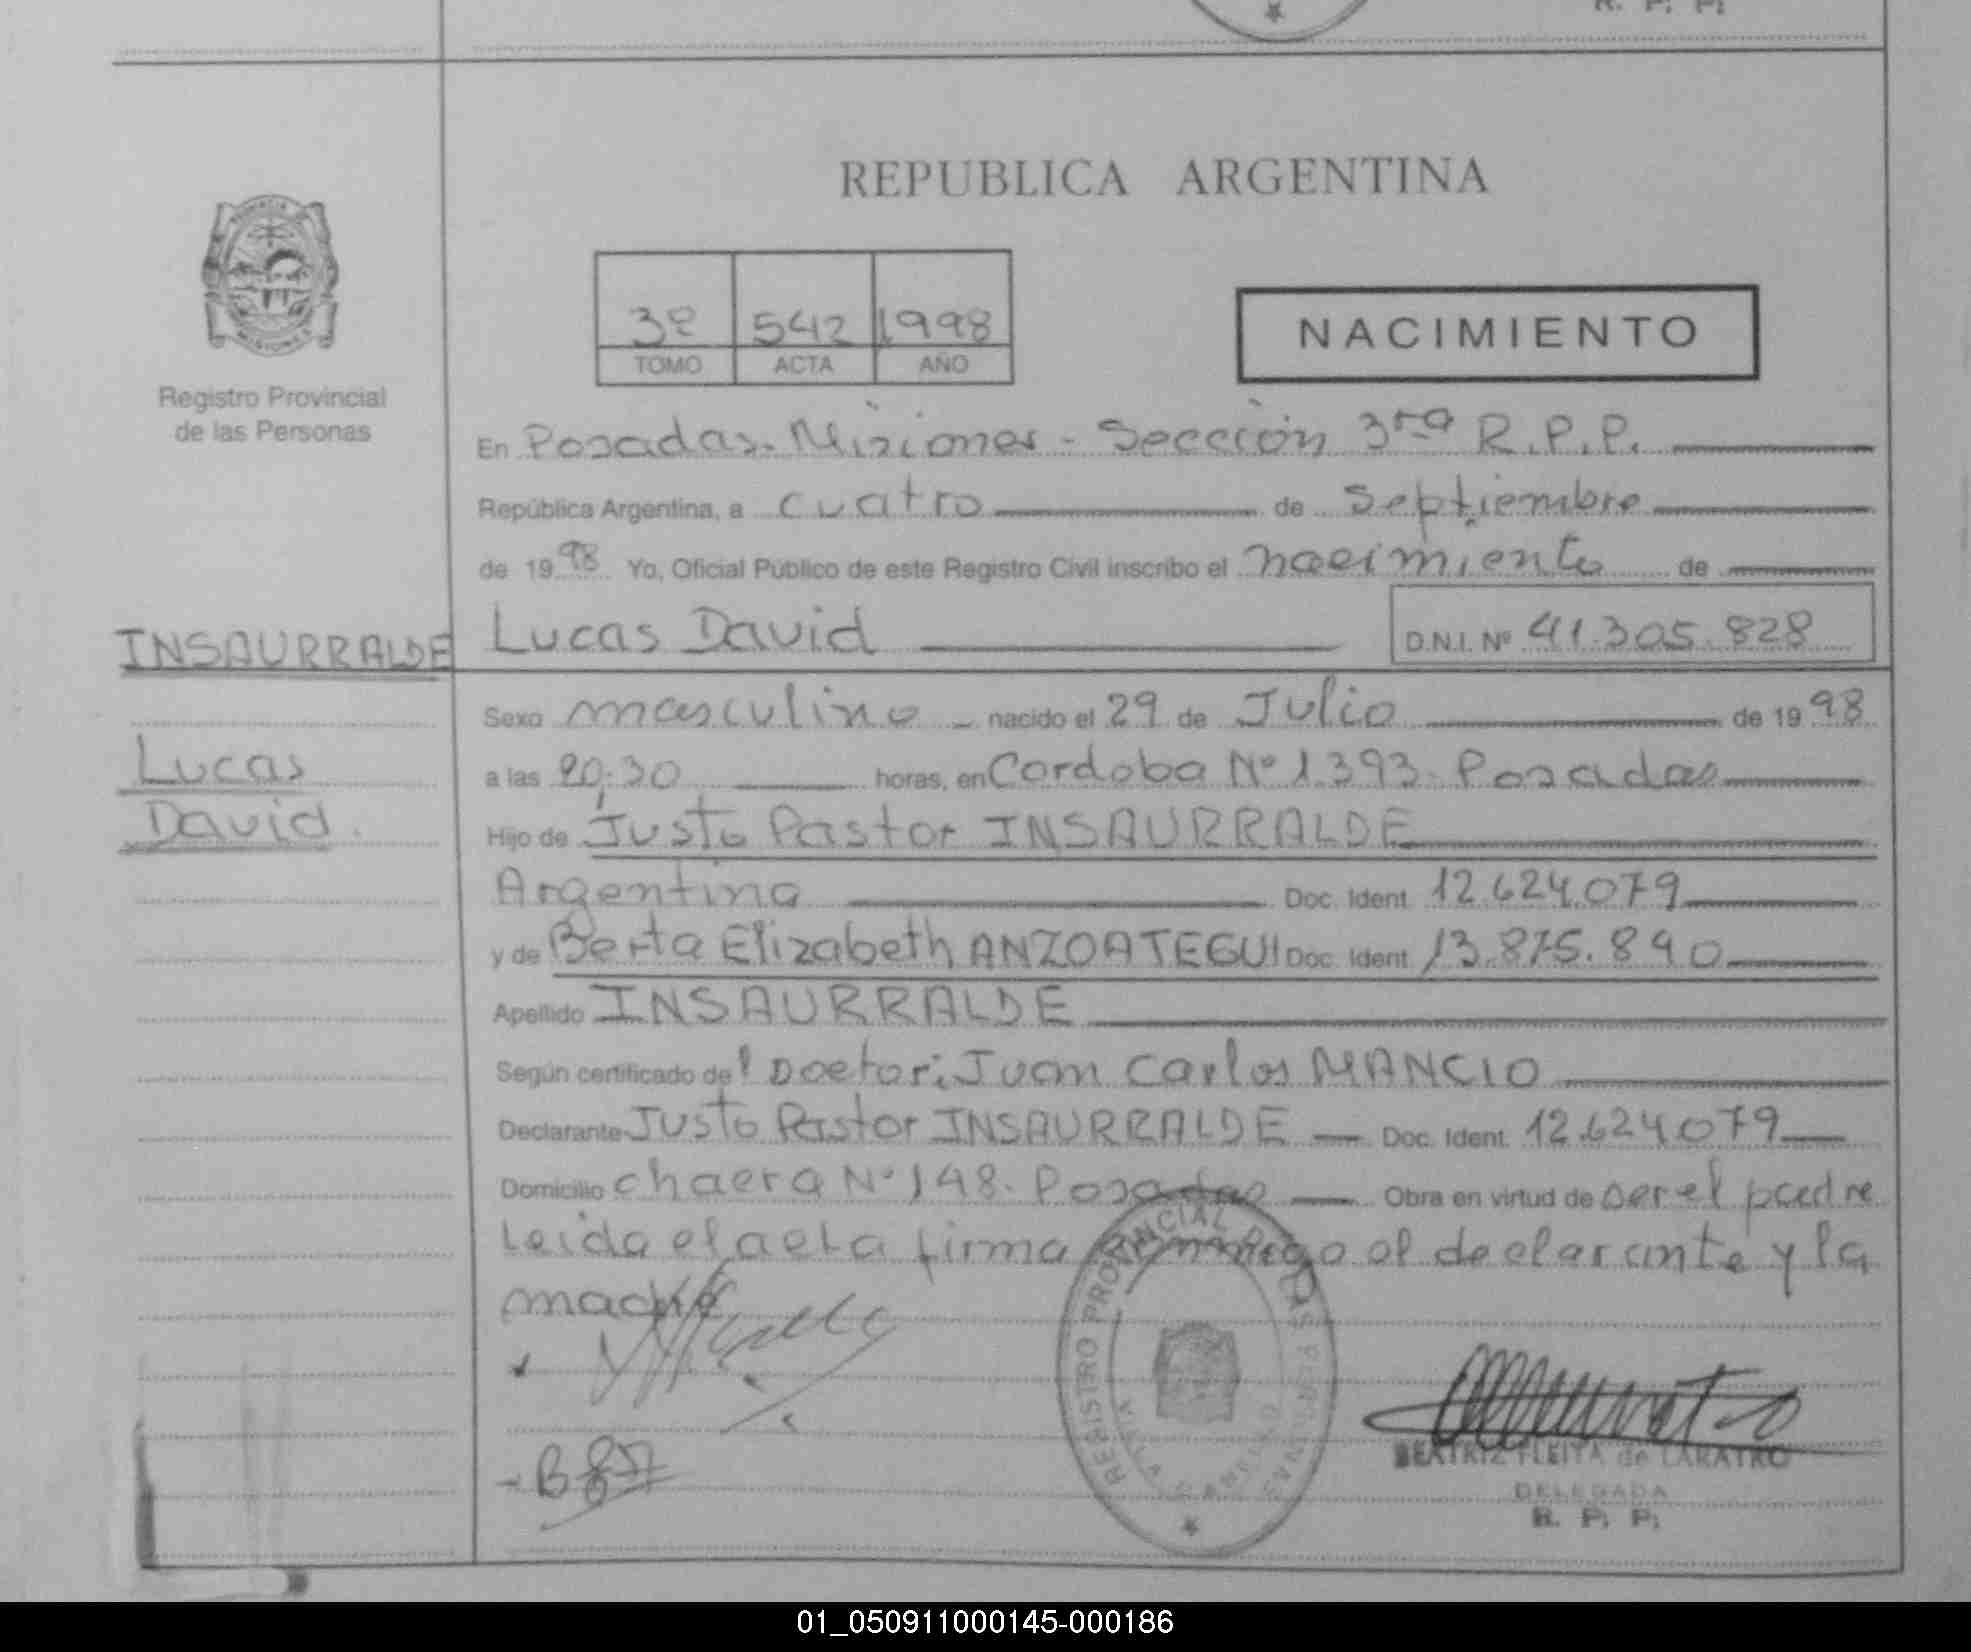 R. P. P.
REPUBLICA ARGENTINA
PROVINCIA
MISIONES
Registro Provincial
de las Personas
3º 542 1998
TOMO ACTA AÑO
NACIMIENTO
En Posadas. Misiones - Sección 3ra R.P.P.
República Argentina, a cuatro de septiembre
de 1998 Yo, Oficial Público de este Registro Civil inscribo el nacimiento de
INSAURRALDE
Lucas David D.N.I. Nº 41.305.828
Sexo masculino - nacido el 29 de Julio de 1998
Lucas
David.
a las 20:30 horas, en Cordoba Nº 1393. Posadas
Hijo de Justo Pastor INSAURRALDE
Argentina Doc. Ident. 12.624.079
y de Berta Elizabeth ANZOATEGUI Doc. Ident. 13.875.890
Apellido INSAURRALDE
Según certificado del Doctor: Juan Carlos MANCIO
Declarante Justo Pastor INSAURRALDE Doc. Ident. 12.624.079
Domicilio chacra Nº 148. Posadas Obra en virtud de ser el padre
Leida el acta firma conmigo el declarante y la
madre
REGISTRO PROVINCIAL DE LAS PERSONAS
BEATRIZ FLEITA de LARATRO
DELEGADA
R. P. P.
01_050911000145-000186